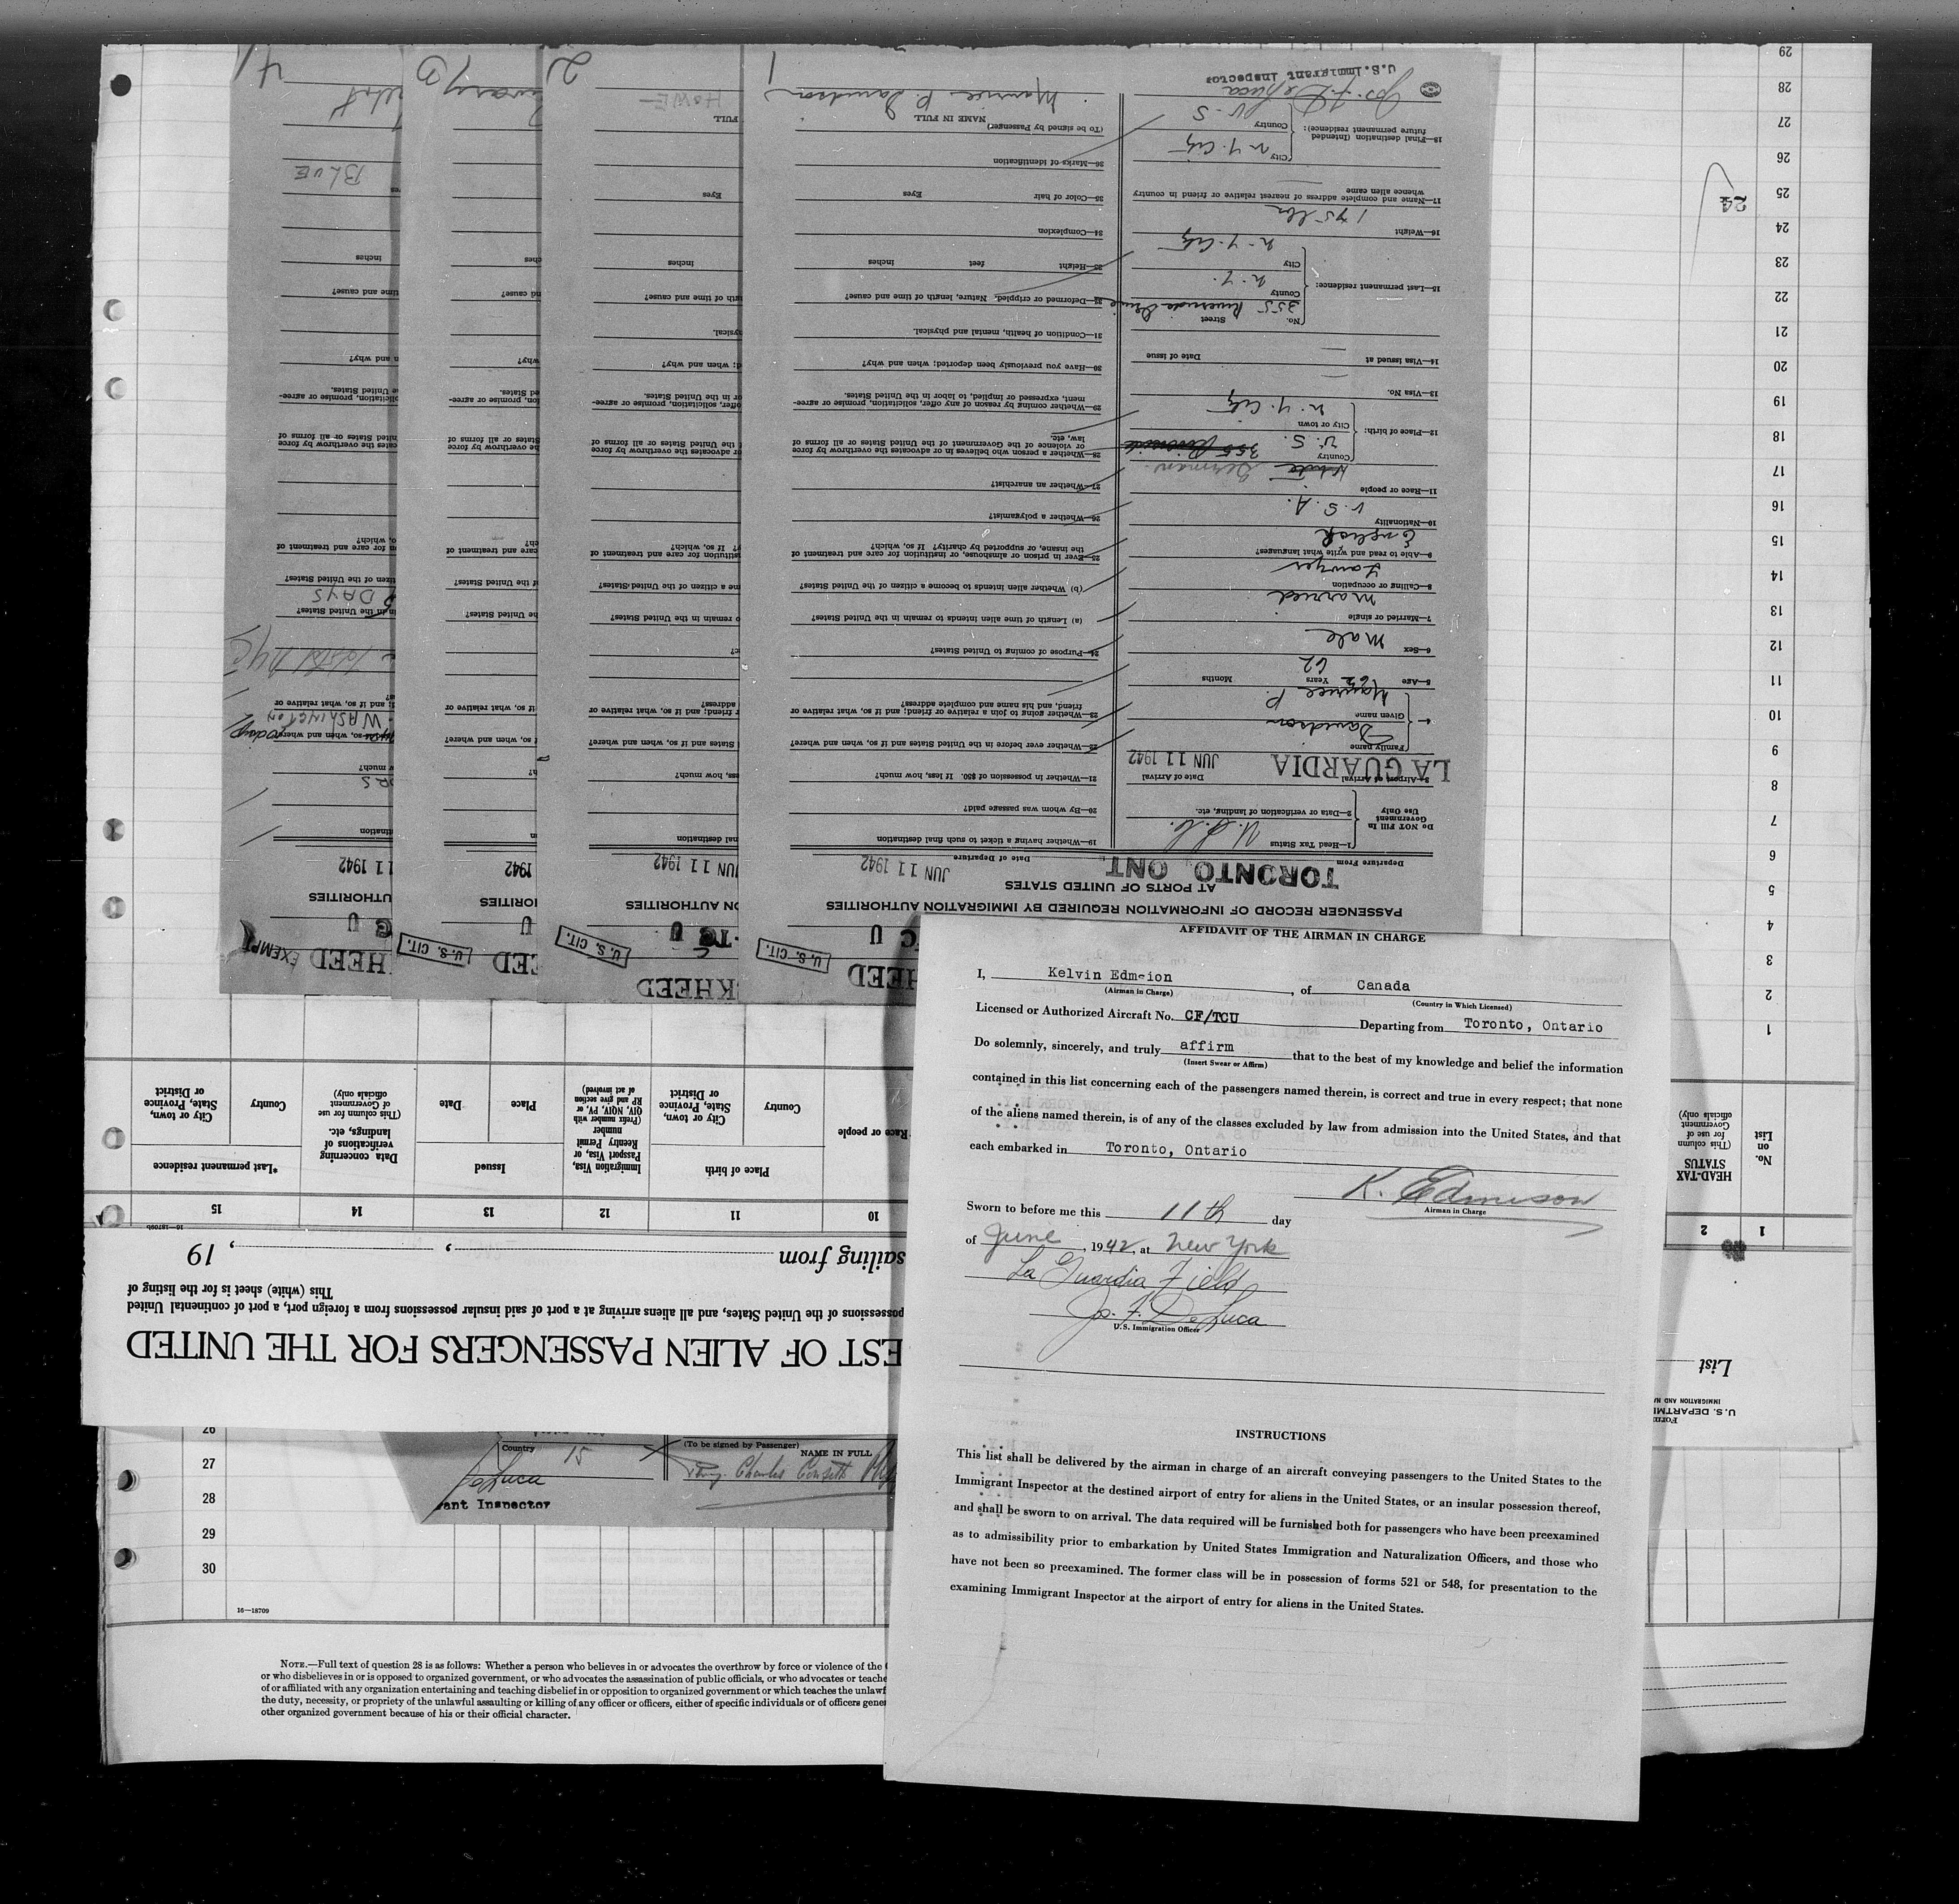 AFFIDAVIT OF THE AIRMAN IN CHARGE
I, Kelvin Edmeion, of Canada
(Airman in Charge) (Country in Which Licensed)
Licensed or Authorized Aircraft No. CF/TCU Departing from Toronto, Ontario
Do solemnly, sincerely, and truly affirm that to the best of my knowledge and belief the information
(Insert Swear or Affirm)
contained in this list concerning each of the passengers named therein, is correct and true in every respect; that none
of the aliens named therein, is of any of the classes excluded by law from admission into the United States, and that
each embarked in Toronto, Ontario
K. Edmison
Airman in Charge
Sworn to before me this 11th day
of June, 1942, at New York
La Guardia Field
Jo. F. DeLuca
U.S. Immigration Officer
INSTRUCTIONS
This list shall be delivered by the airman in charge of an aircraft conveying passengers to the United States to the
Immigrant Inspector at the destined airport of entry for aliens in the United States, or an insular possession thereof,
and shall be sworn to on arrival. The data required will be furnished both for passengers who have been preexamined
as to admissibility prior to embarkation by United States Immigration and Naturalization Officers, and those who
have not been so preexamined. The former class will be in possession of forms 521 or 548, for presentation to the
examining Immigrant Inspector at the airport of entry for aliens in the United States.
U.S. CIT.
PASSENGER RECORD OF INFORMATION REQUIRED BY IMMIGRATION AUTHORITIES
AT PORTS OF UNITED STATES
TORONTO, ONT. JUN 11 1942
Departure From Date of Departure
Do NOT Fill In
Government
Use Only
1—Head Tax Status
2—Data or verification of landing, etc.
LA GUARDIA JUN 11 1942
3—Airport of Arrival Date of Arrival
4 Family name Davidson
Given name Maurice P.
5—Age 62 Years Months
6—Sex Male
7—Married or single Married
8—Calling or occupation Lawyer
9—Able to read and write what languages? English
10—Nationality U. S. A.
11—Race or people White German
12—Place of birth: Country U. S.
City or town N. Y. City
13—Visa No.
14—Visa issued at Date of issue
15—Last permanent residence: No. 355 Street Riverside Drive
County N. Y.
City N. Y. City
16—Weight 175 lbs
17—Name and complete address of nearest relative or friend in country
whence alien came
18—Final destination (Intended
future permanent residence):
City N. Y. City
Country U. S.
Jo. F. DeLuca
U.S. Immigrant Inspector
19—Whether having a ticket to such final destination
20—By whom was passage paid?
21—Whether in possession of $50. If less, how much?
22—Whether ever before in the United States and if so, when and where?
23—Whether going to join a relative or friend; and if so, what relative or
friend, and his name and complete address?
24—Purpose of coming to United States?
(a) Length of time alien intends to remain in the United States?
(b) Whether alien intends to become a citizen of the United States?
25—Ever in prison or almshouse, or institution for care and treatment of
the insane, or supported by charity? If so, which?
26—Whether a polygamist?
27—Whether an anarchist?
28—Whether a person who believes in or advocates the overthrow by force
or violence of the Government of the United States or all forms of
law, etc.
29—Whether coming by reason of any offer, solicitation, promise or agree-
ment, expressed or implied, to labor in the United States.
30—Have you previously been deported; when and why?
31—Condition of health, mental and physical.
32—Deformed or crippled. Nature, length of time and cause?
33—Height feet inches
34—Complexion
35—Color of hair Eyes
36—Marks of identification
(To be signed by Passenger)
NAME IN FULL
Maurice P. Davidson
1
2
HOWE
U.S. CIT.
JUN 11 1942
3
U.S. CIT.
1942
4
EXEMPT
11 1942
WASHINGTON
DAYS
BLUE
EST OF ALIEN PASSENGERS FOR THE UNITED
possessions of the United States, and all aliens arriving at a port of said insular possessions from a foreign port, a port of continental United
This (white) sheet is for the listing of
sailing from , , 19
16—18700b
10 11 12 13 14 15
Race or people
Place of birth
Country
City or town,
State, Province
or District
Immigration Visa,
Passport Visa, or
Reentry Permit
number
(Prefix number with
QIV, NQIV, PV, or
RP and give section
of act involved)
Issued
Place
Date
Data concerning
verifications of
landings, etc.
(This column for use
of Government
officials only)
*Last permanent residence
Country
City or town,
State, Province
or District
List
1 2
No.
on
List
HEAD-TAX
STATUS
(This column
for use of
Government
officials only)
1
2
3
4
5
6
7
8
9
10
11
12
13
14
15
16
17
18
19
20
21
22
23
24
25
26
27
28
29
24
26
27
28
29
30
Country
DeLuca
ant Inspector
(To be signed by Passenger)
NAME IN FULL
16—18709
NOTE.—Full text of question 28 is as follows: Whether a person who believes in or advocates the overthrow by force or violence of the
or who disbelieves in or is opposed to organized government, or who advocates the assassination of public officials, or who advocates or teache
of or affiliated with any organization entertaining and teaching disbelief in or opposition to organized government or which teaches the unlawf
the duty, necessity, or propriety of the unlawful assaulting or killing of any officer or officers, either of specific individuals or of officers gener
other organized government because of his or their official character.